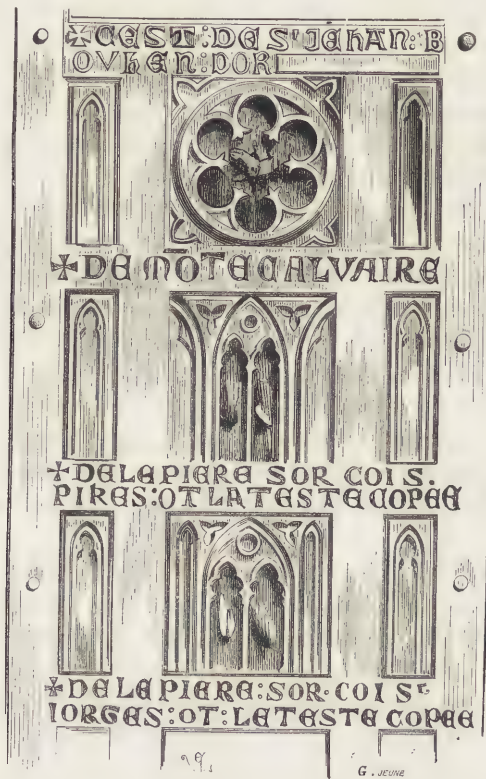 ✠CEST:DE Sᵗ JEHAN:B
OVHEN:DOR
✠DE MŌTE CALVAIRE
✠DE LE PIERE SOR COI S.
PIRES:OT LA TESTE COPEE
✠DE LE PIERE:SOR·COI Sᵗ
IORGES:OT:LE TESTE COPEE
G. JEUNE